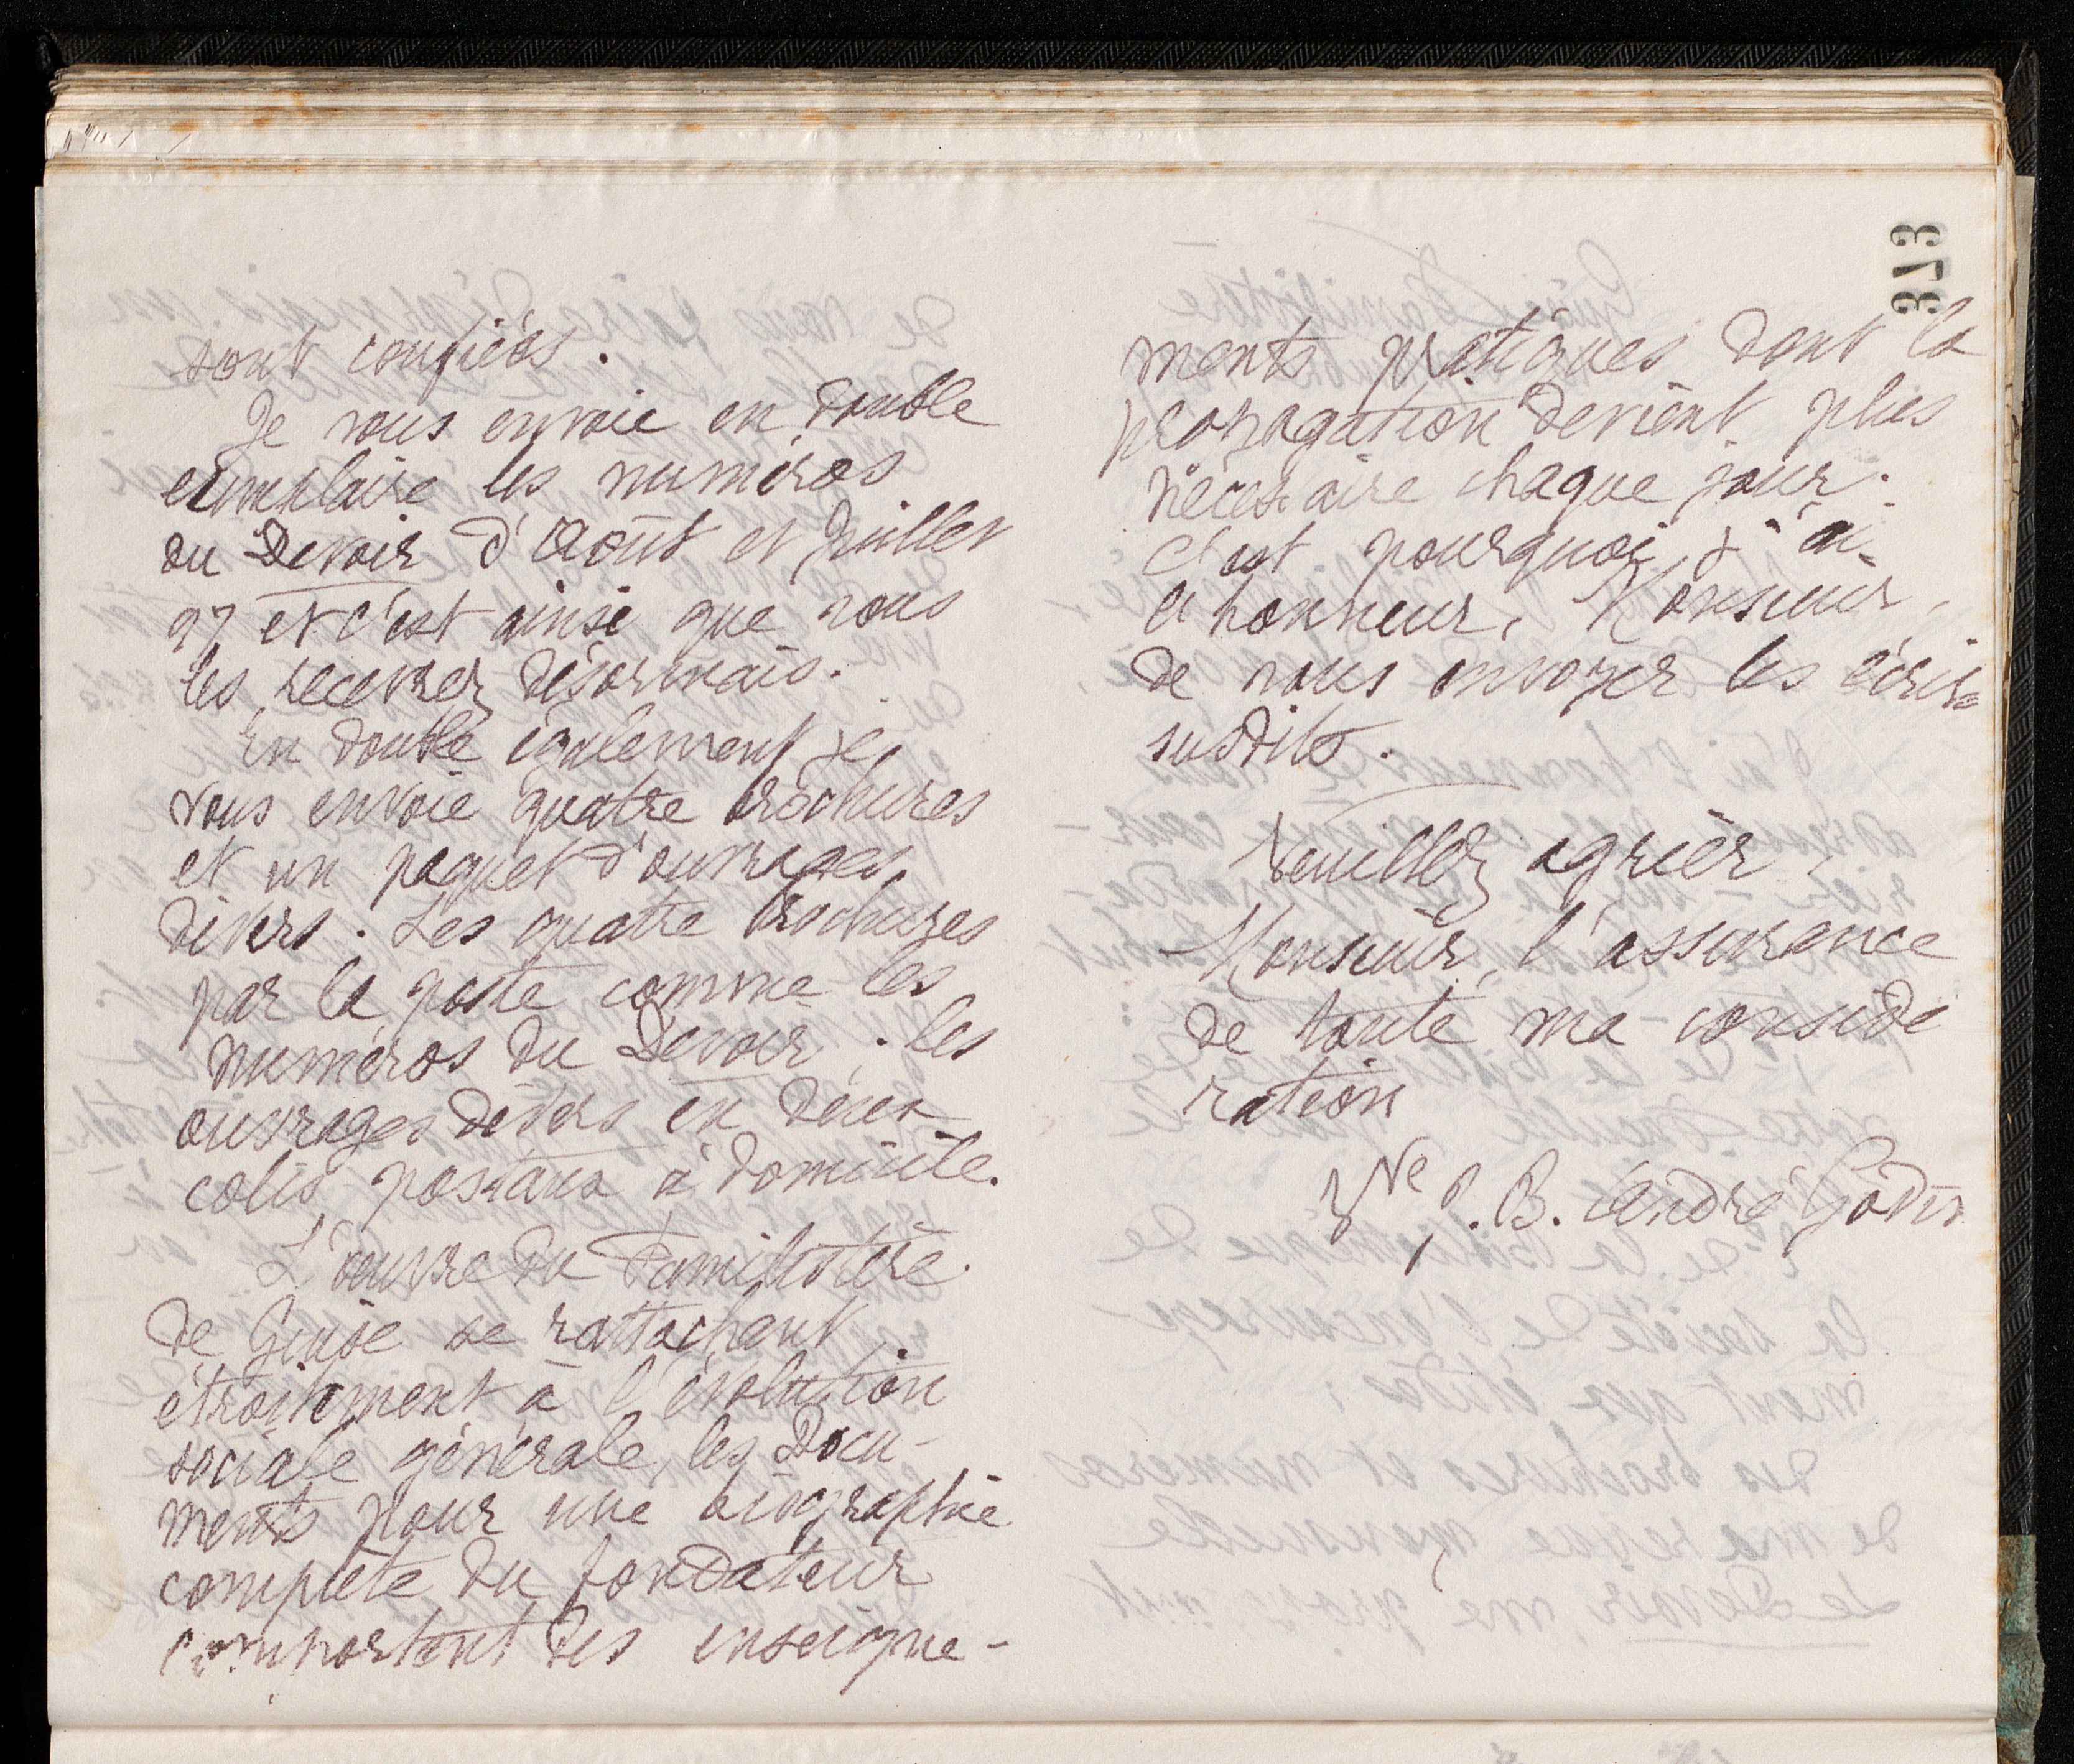 sont confiées.
Je vous envoie en double
exemplaire les numéros
du Devoir d'Août et Juillet
97 et c'est ainsi que vous
les recevrez désormais.
En double également je
vous envoie quatre brochures
et un paquet d'ouvrages
divers. Les quatre brochures
par la poste comme les
numéros du Devoir ; les
ouvrages divers en deux
colis postaux à domicile.
L'œuvre du Familistère
de Guise se rattachant
étroitement à l'évolution
sociale générale, les Docu-
ments pour une biographie
complète du fondateur
comportent des enseigne-
313
ments pratiques dont la
propagation devient plus
nécessaire chaque jour.
C'est pourquoi j'ai
l'honneur, Monsieur,
de vous envoyer les écrits
susdits.
Veuillez agréer,
Monsieur, l'assurance
de toute ma considé
ration
Vve J. B. André Godin